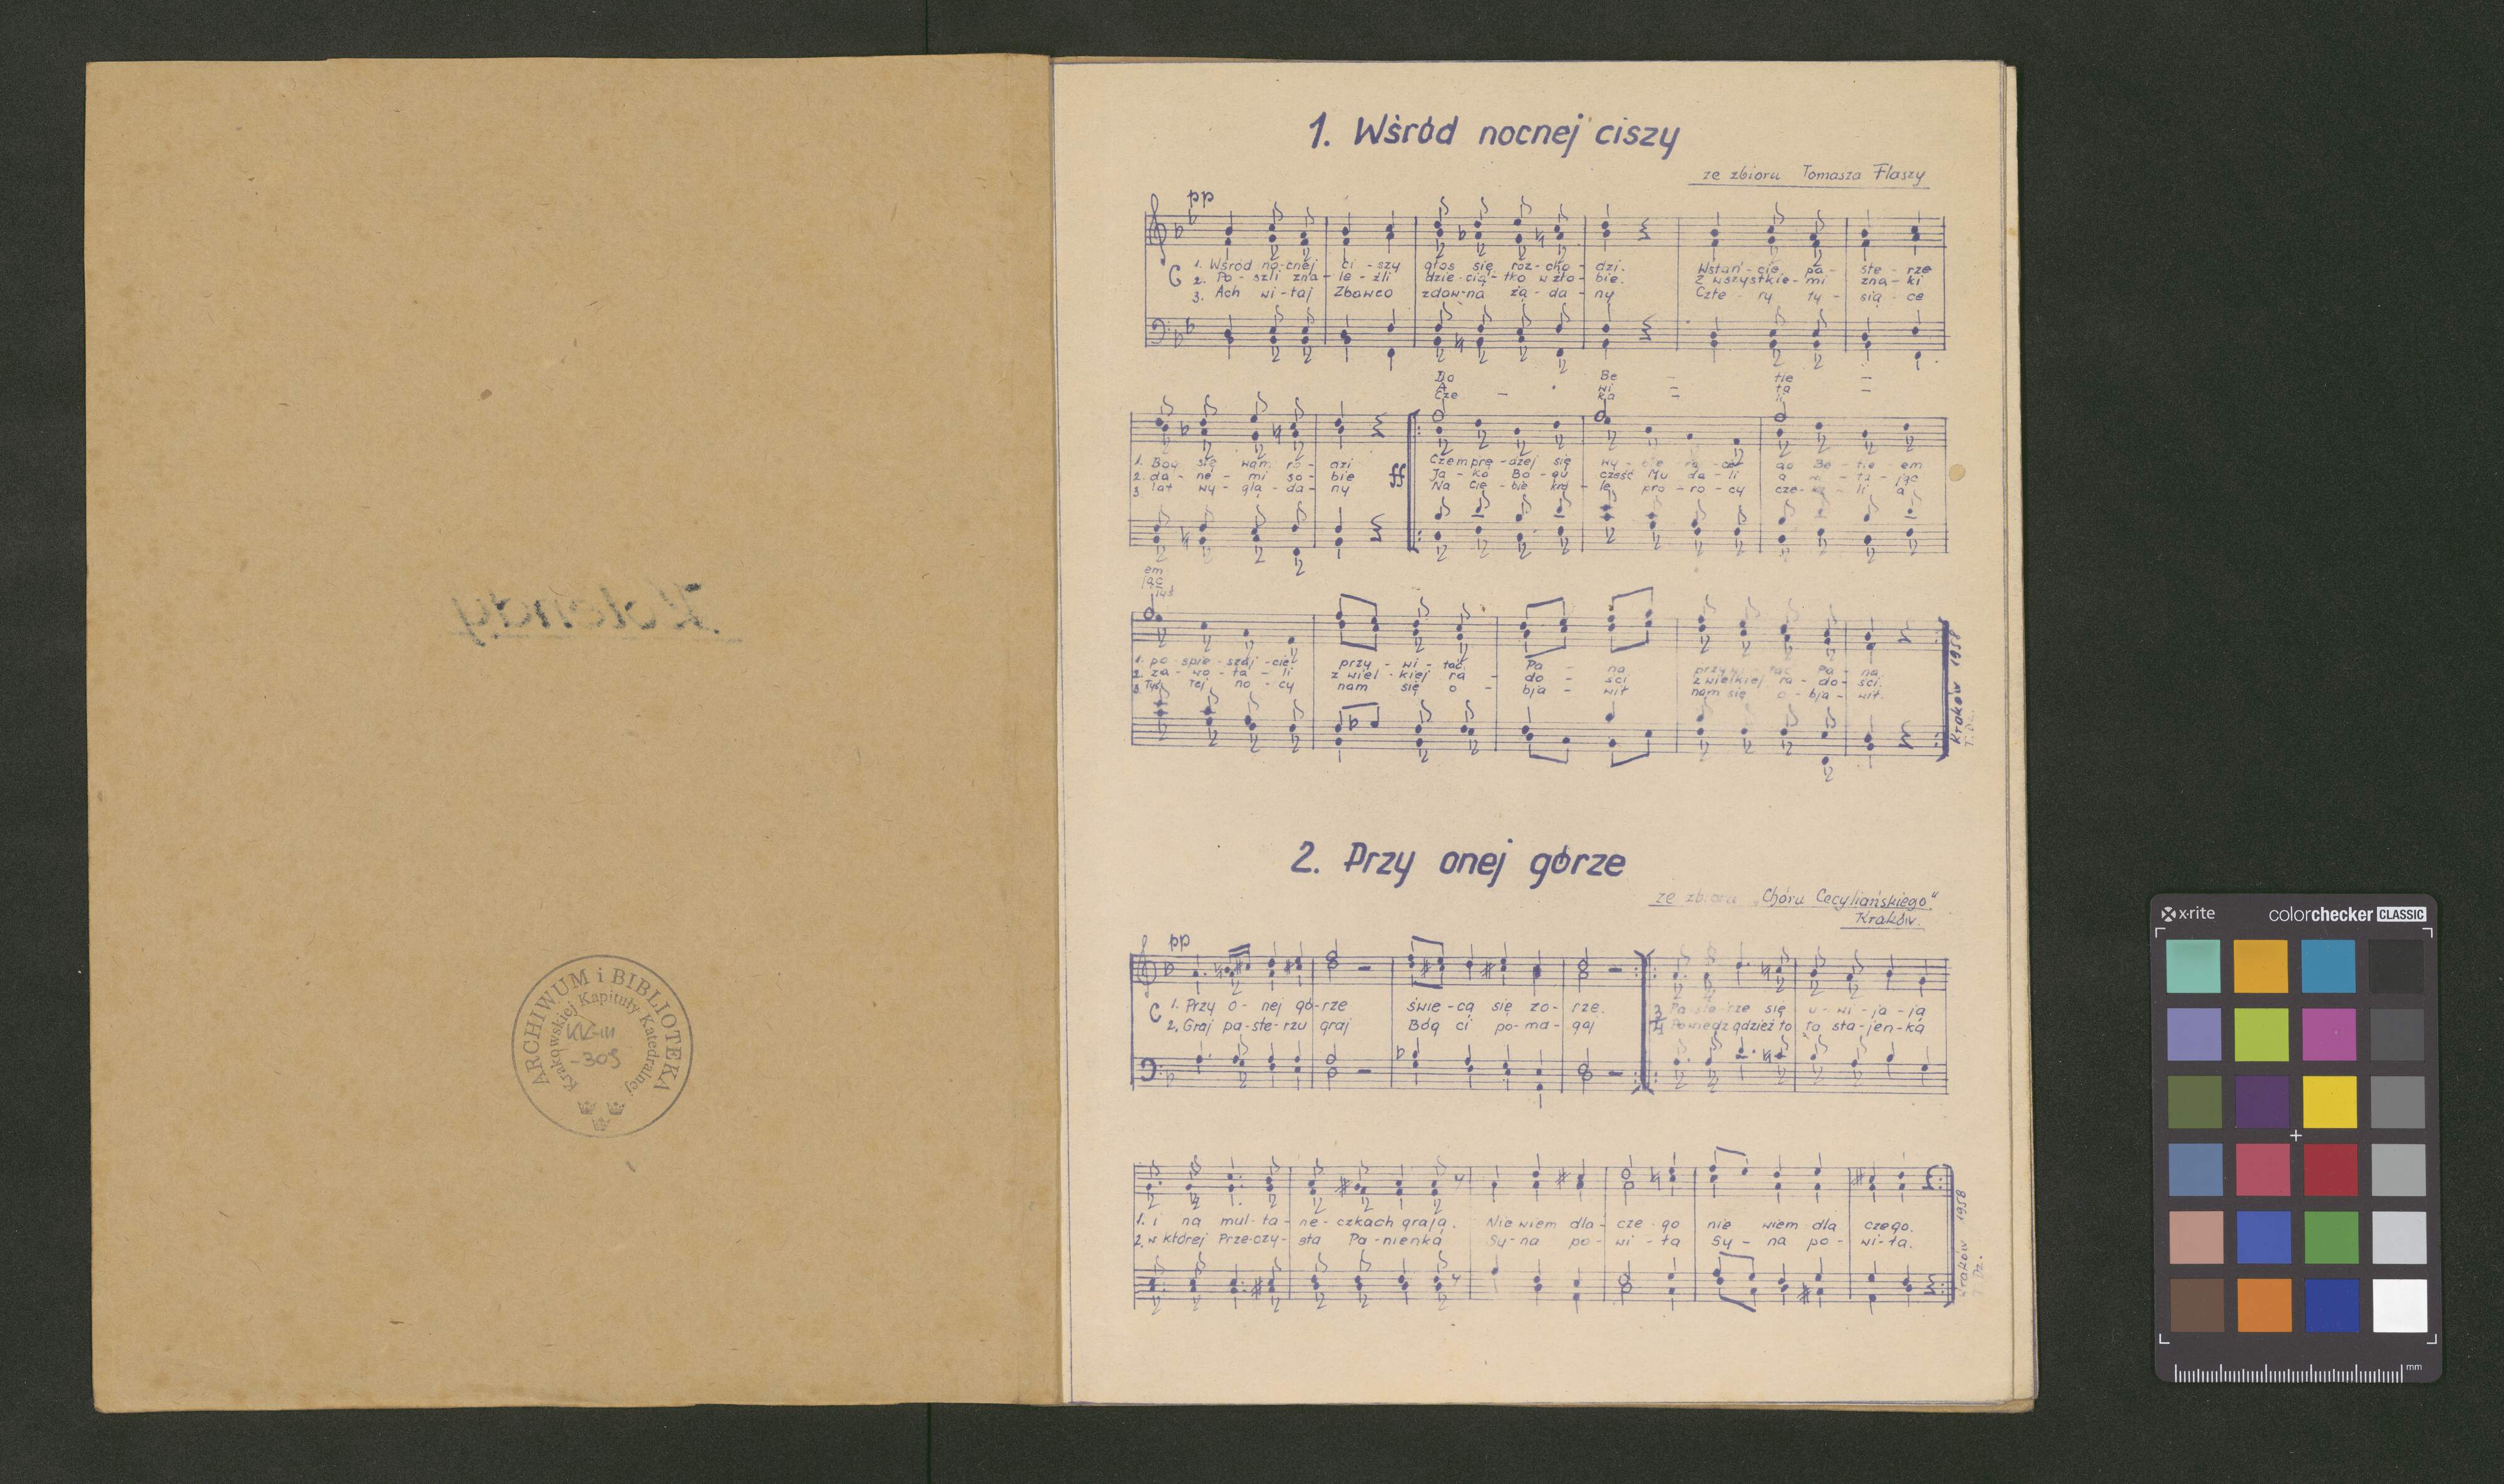 Kolendy
ARCHIWUM i BIBLIOTEKA
Krakowskiej Kapituły Katedralnej
KK-III
-309
1. Wśród nocnej ciszy
ze zbioru Tomasza Flaszy
pp
1. Wśród no-cnej ci-szy głos się roz-cho-dzi. Wstań-cie, pa-ste-rze
C 2. Po-szli zna-le-źli dzie-cią-tko w żło-bie. Z wszystkie-mi zna-ki
3. Ach wi-taj Zbawco zdaw-na żą-da-ny Czte-ry ty-sią-ce
Do Be - tle -
A wi - ta -
Cze ka -
1. Bóg się wam ro-dzi Czemprę-dzej się wy-bie-raj-cie do Be-tle-em
2. da-ne-mi so-bie ff Ja-ko Bo-gu cześć Mu da-li a wi-ta-jąc
3 lat wy-glą-da-ny Na Cie-bie kró-le, pro-ro-cy cze-ka-li a
em
jąc
Tyś
1. po-spie-szaj-cie przy-wi-tać Pa-na przywi-tać Pa-na.
2. za-wo-ła-li z wiel-kiej ra-do-ści z wielkiej ra-do-ści.
3. Tyś tej no-cy nam się o-bja-wił nam się o-bja-wił.
Kraków 1958
T. Dz.
2. Przy onej górze
ze zbioru „Chóru Cecyliańskiego"
Kraków.
pp
1. Przy o-nej gó-rze świe-cą się zo-rze. 3 Pa-ste-rze się u-wi-ja-ją
C 2. Graj pa-ste-rzu graj Bóg ci po-ma-gaj 4 Powiedz gdzież to ta sta-jen-ka
1. i na mul-ta-ne-czkach grają. Nie wiem dla-cze-go nie wiem dla czego.
2. w której Prze-czy-sta Pa-nienka Sy-na po-wi-ła Sy-na po-wi-ła.
Kraków 1958
T. Dz.
x-rite colorchecker CLASSIC
mm